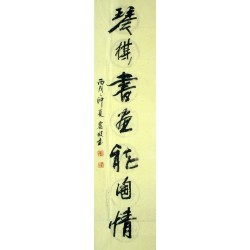 琴棋書畫能陶情
丙戌仲夏